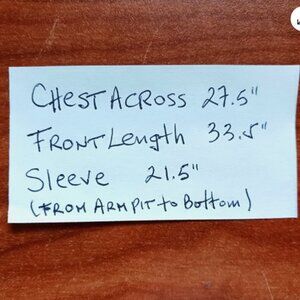 CHEST ACROSS 27.5"
FRONT Length 33.5"
Sleeve 21.5"
(FROM ARMPIT to Bottom)